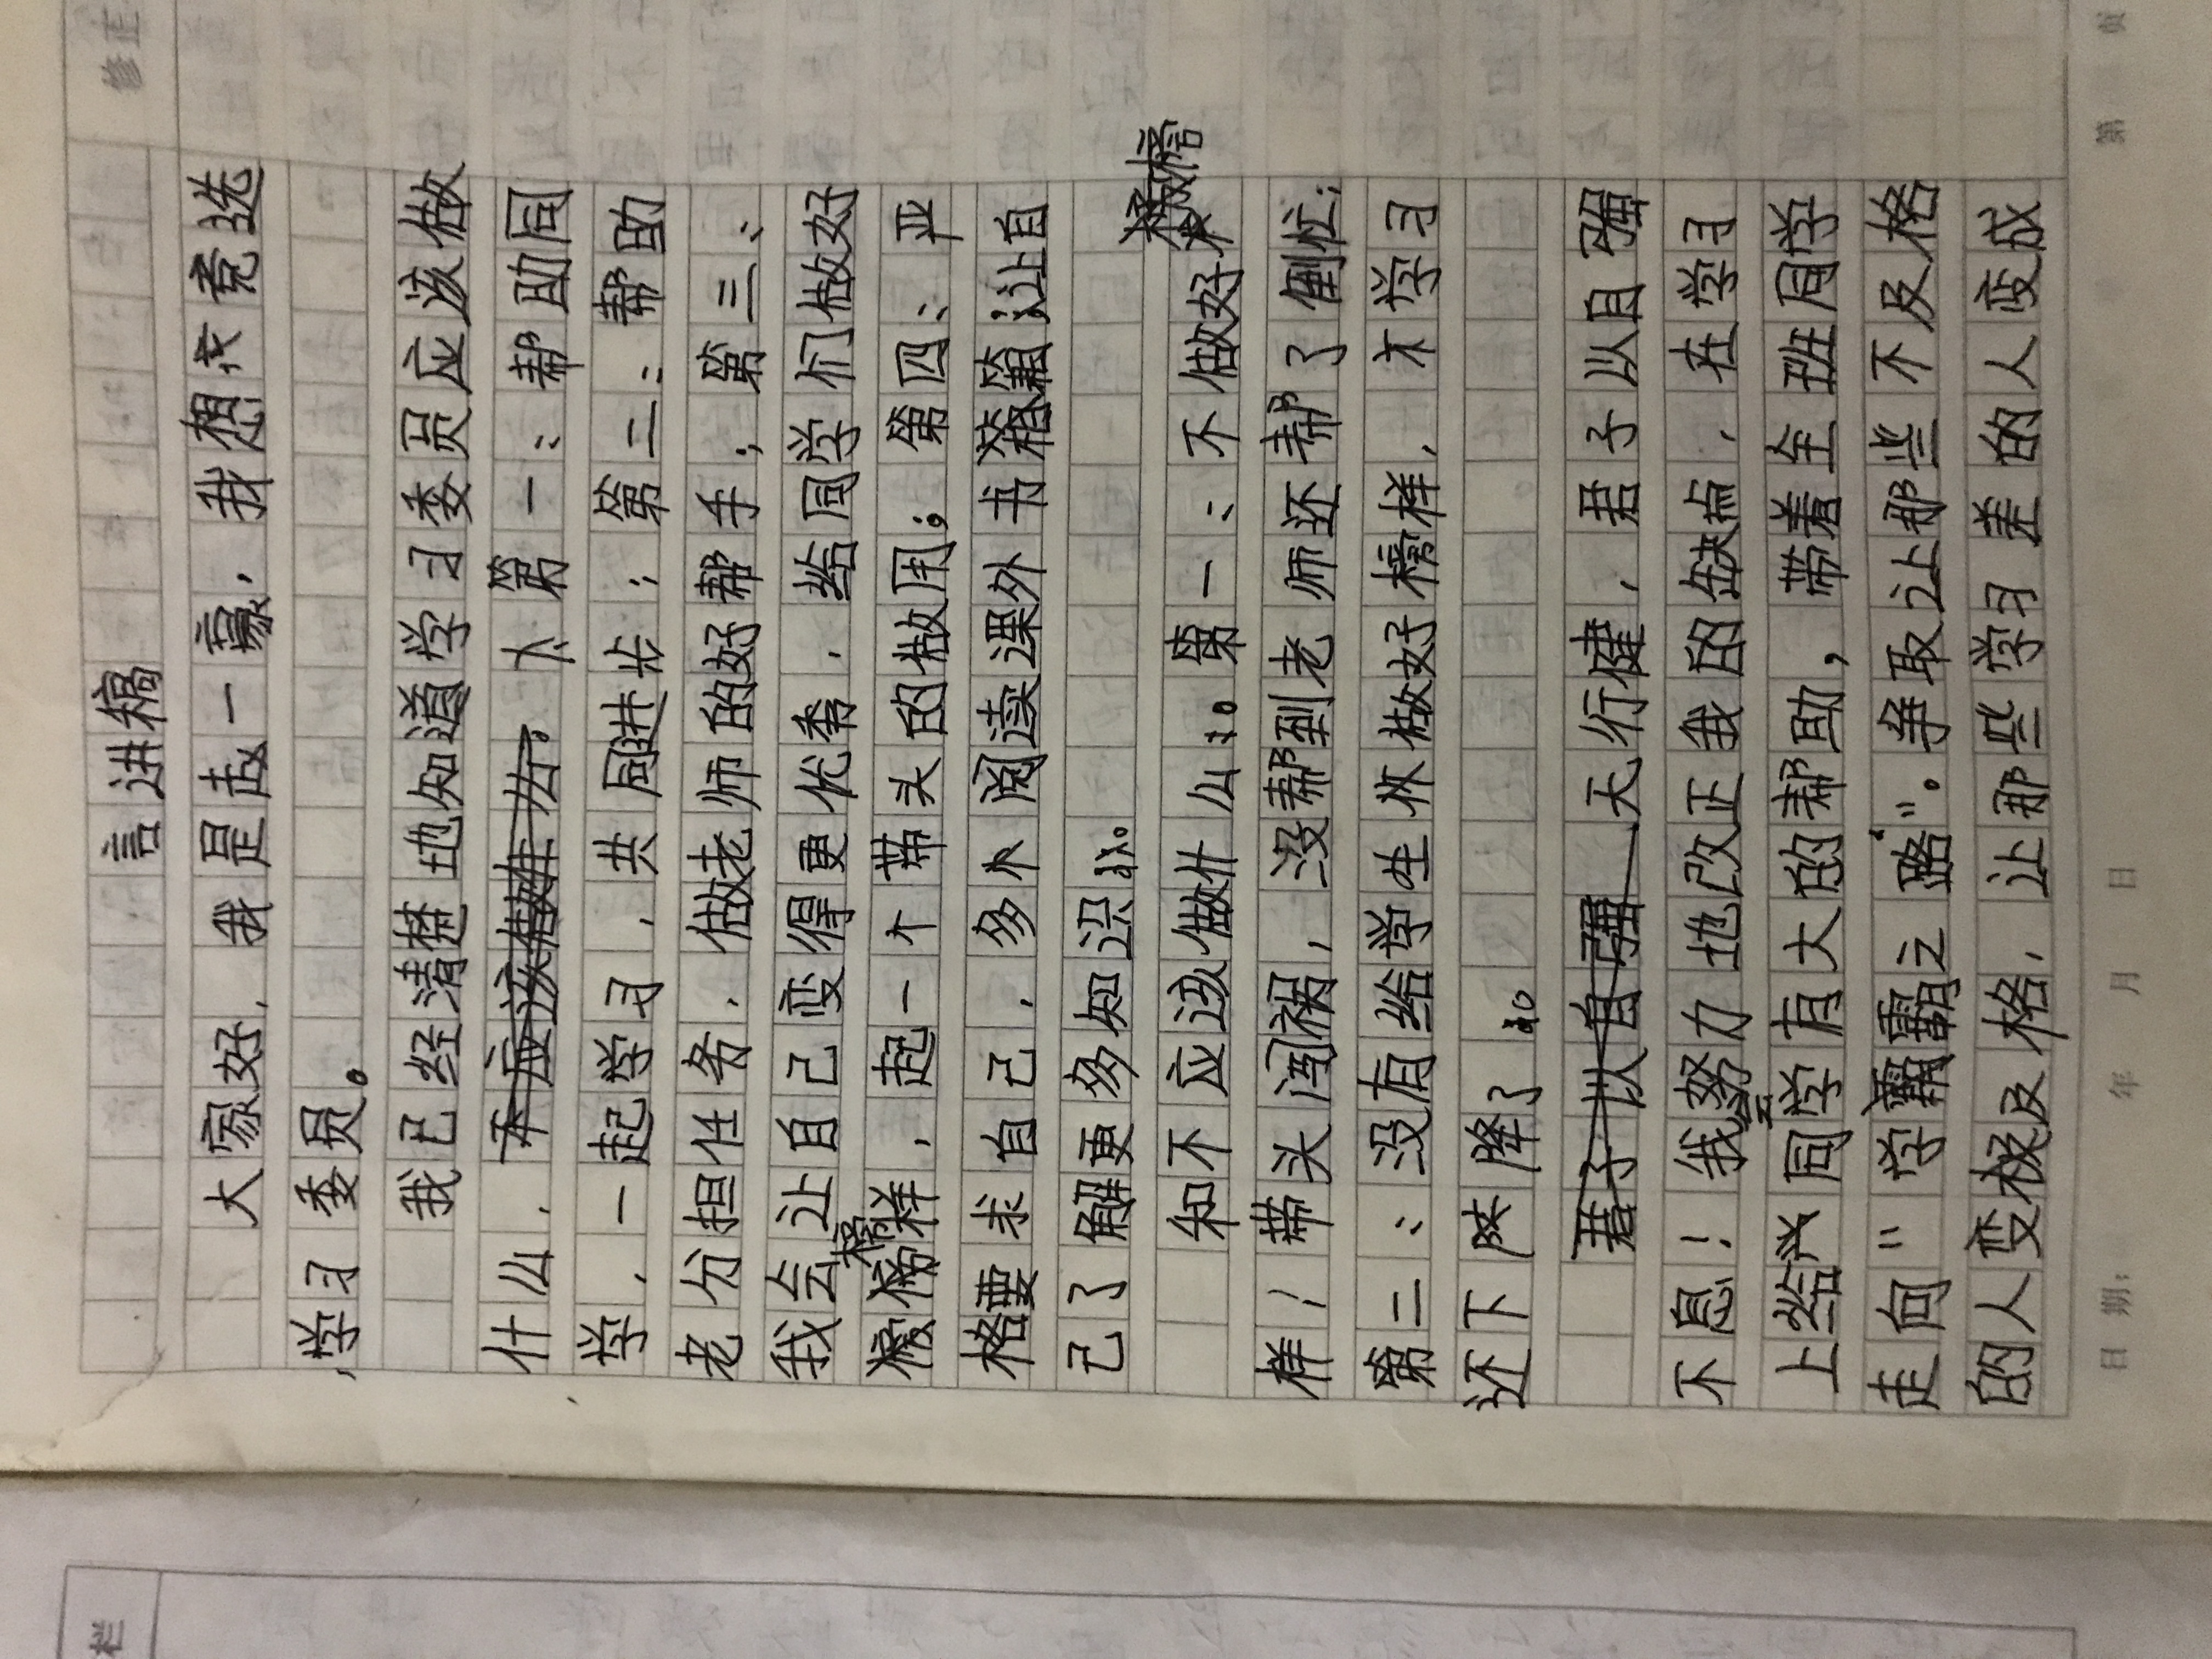 修正
言讲稿
大家好，我是赵一豪，我想找竞选
学习委员。
我已经清楚地知道学习委员应该做
什么，不应该做什么。第一：帮助同
学，一起学习，共同进步；第二：帮助
老分担任务，做老师的好帮手；第三：
我会让自己变得更优秀，给同学们做好
榜样，起一个带头的做用；第四：严
格要求自己，多个阅读课外书籍；让自
己了解更多知识。
和不应该做什么：。第一：不做好榜
样/带头闯祸，没帮到老师还帮了倒忙；
第二：没有给学生休做好榜样，不学习
还下降了。
君子以自强 天行健，君子以自强
不息！我努力地改正我的缺点，在学习
上给我同学有大的帮助，带着全班同学
走向"学霸之路"。争取让那些不及格
的人变极及格，让那些学习差的人变成
日期： 年 月 日 第 页
栏